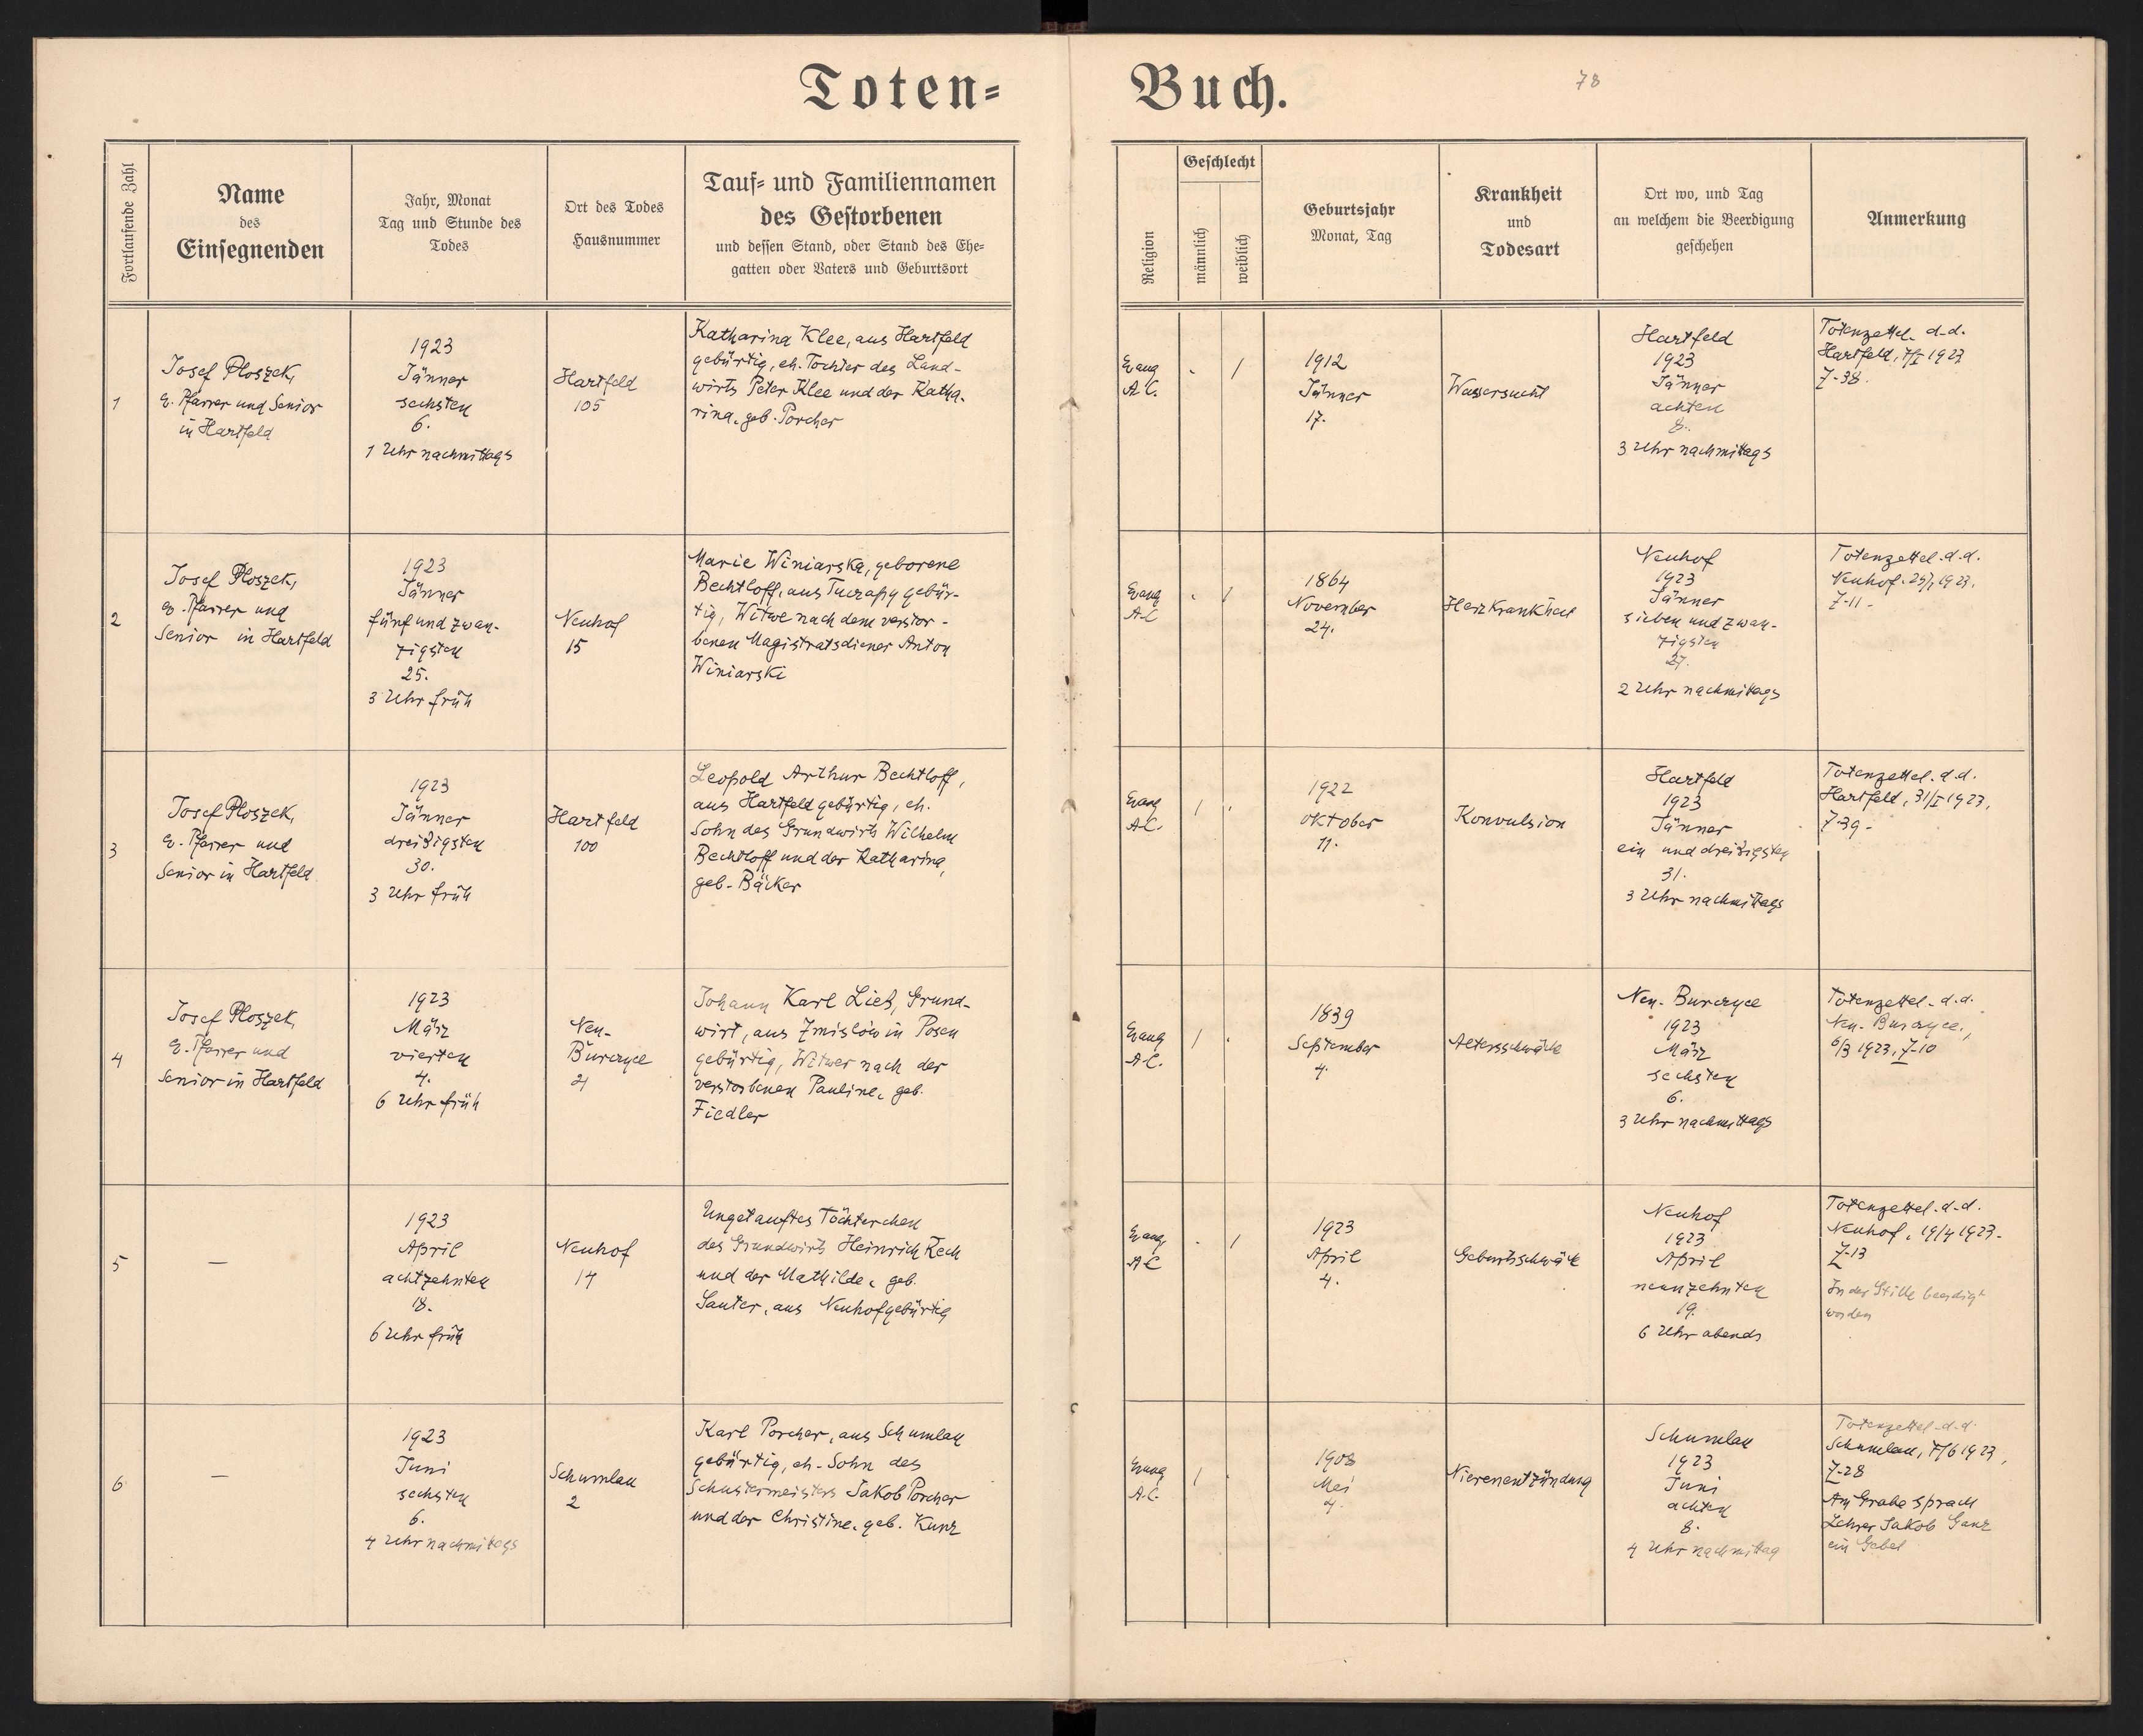 Toten= Buch.
78
Fortlaufende Zahl
Name
des
Einsegnenden
Jahr, Monat
Tag und Stunde des
Todes
Ort des Todes
Hausnummer
Tauf= und Familiennamen
des Gestorbenen
und dessen Stand, oder Stand des Ehe=
gatten oder Vaters und Geburtsort
Religion
Geschlecht
männlich
weiblich
Geburtsjahr
Monat, Tag
Krankheit
und
Todesart
Ort wo, und Tag
an welchem die Beerdigung
geschehen
Anmerkung
1
Josef Ploszek,
e. Pfarrer und Senior
in Hartfeld
1923
Jänner
sechsten
6.
1 Uhr nachmittags
Hartfeld
105
Katharina Klee, aus Hartfeld
gebürtig, eh. Tochter des Land-
wirts Peter Klee und der Katha-
rina, geb. Porcher
Evang
A.C.
. /
1912
Jänner
17.
Wassersucht
Hartfeld
1923
Jänner
achten
8.
3 Uhr nachmittags
Totenzettel d.d.
Hartfeld, 7/I 1923
Z-38.
2
Josef Ploszek,
ev. Pfarrer und
Senior in Hartfeld
1923
Jänner
fünf und zwan-
zigsten
25.
3 Uhr früh
Neuhof
15
Marie Winiarska, geborene
Bechtloff, aus Tuczapy gebür-
tig, Witwe nach dem verstor-
benen Magistratsdiener Anton
Winiarski
Evang
A.C
. /
1864
November
24.
Herzkrankheit
Neuhof
1923
Jänner
sieben und zwan-
zigsten
27.
2 Uhr nachmittags
Totenzettel d.d.
Neuhof 1923.
Z-11-
3
Josef Ploszek,
ev. Pfarrer und
Senior in Hartfeld
1923
Jänner
dreißigsten
30.
3 Uhr früh
Hartfeld
100
Leopold Arthur Bechtloff,
aus Hartfeld gebürtig, eh.
Sohn des Grundwirts Wilhelm
Bechtloff und der Katharina,
geb. Bäcker
Evang
A.C.
/ .
1922
Oktober
11.
Konvulsion
Hartfeld
1923
Jänner
ein und dreißigsten
31.
3 Uhr nachmittags
Totenzettel d.d.
Hartfeld, 31/I 1923,
Z-39-
4
Josef Ploszek,
e. Pfarrer und
Senior in Hartfeld
1923
März
vierten
4.
6 Uhr früh
Neu-
Burczyce
21
Johann Karl Lieb, Grund-
wirt, aus Zmislow in Posen
gebürtig, Witwer nach der
verstorbenen Pauline, geb.
Fiedler
Evang
A.C.
/ .
1839
September
4.
Altersschwäche
Neu-Burczyce
1923
März
sechsten
6.
3 Uhr nachmittags
Totenzettel d.d.
Neu-Burczyce,
6/3 1923, Z-10
5
—
1923
April
achtzehnten
18.
6 Uhr früh
Neuhof
14
Ungetauftes Töchterchen
des Grundwirts Heinrich Rech
und der Mathilde, geb.
Sauter, aus Neuhof gebürtig
Evang
A.C
. /
1923
April
4.
Geburtsschwäche
Neuhof
1923
April
neunzehnten
19.
6 Uhr abends
Totenzettel d.d.
Neuhof, 19/4 1923.
Z-13
In der Stille beerdigt
worden
6
—
1923
Juni
sechsten
6.
4 Uhr nachmittags
Schumlau
2
Karl Porcher, aus Schumlau
gebürtig, eh. Sohn des
Schustermeisters Jakob Porcher
und der Christine, geb. Kunz
Evang
A.C.
/ .
1908
Mai
4.
Nierenentzündung
Schumlau
1923
Juni
achten
8.
4 Uhr nachmittag
Totenzettel d.d.
Schumlau, 7/6 1923,
Z-28
Am Grabe sprach
Lehrer Jakob Ganz
ein Gebet